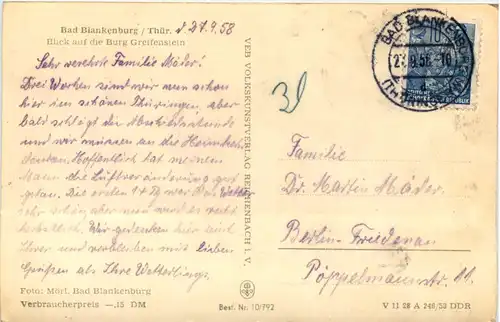 Bad Blankenburg / Thür. d 27.9.58
Blick auf die Burg Greifenstein
Sehr verehrte Familie Mäder!
Drei Wochen sind wir nun schon
hier im schönen Thüringen, aber
bald schlägt die Abschiedsstunde
und wir müssen an die Heimkehr
denken. Hoffentlich hat meinem
Mann die Luftveränderung gut
getan. Die ersten 14 Tg war das Wetter
sehr schön, aber nun wird es recht
herbstlich. Wir gedenken hier und
Ihrer und verbleiben mit lieben
Grüßen als Ihre Wetterlings
Foto: Mörl, Bad Blankenburg
Verbraucherpreis —,15 DM
Best. Nr. 10/792
VEB VOLKSKUNSTVERLAG REICHENBACH I. V.
BAD BLANKENBURG
10
Familie
Dr. Martin Mäder.
Berlin-Friedenau
Pöppelmannstr. 11.
V 11 28 A 248/58 DDR